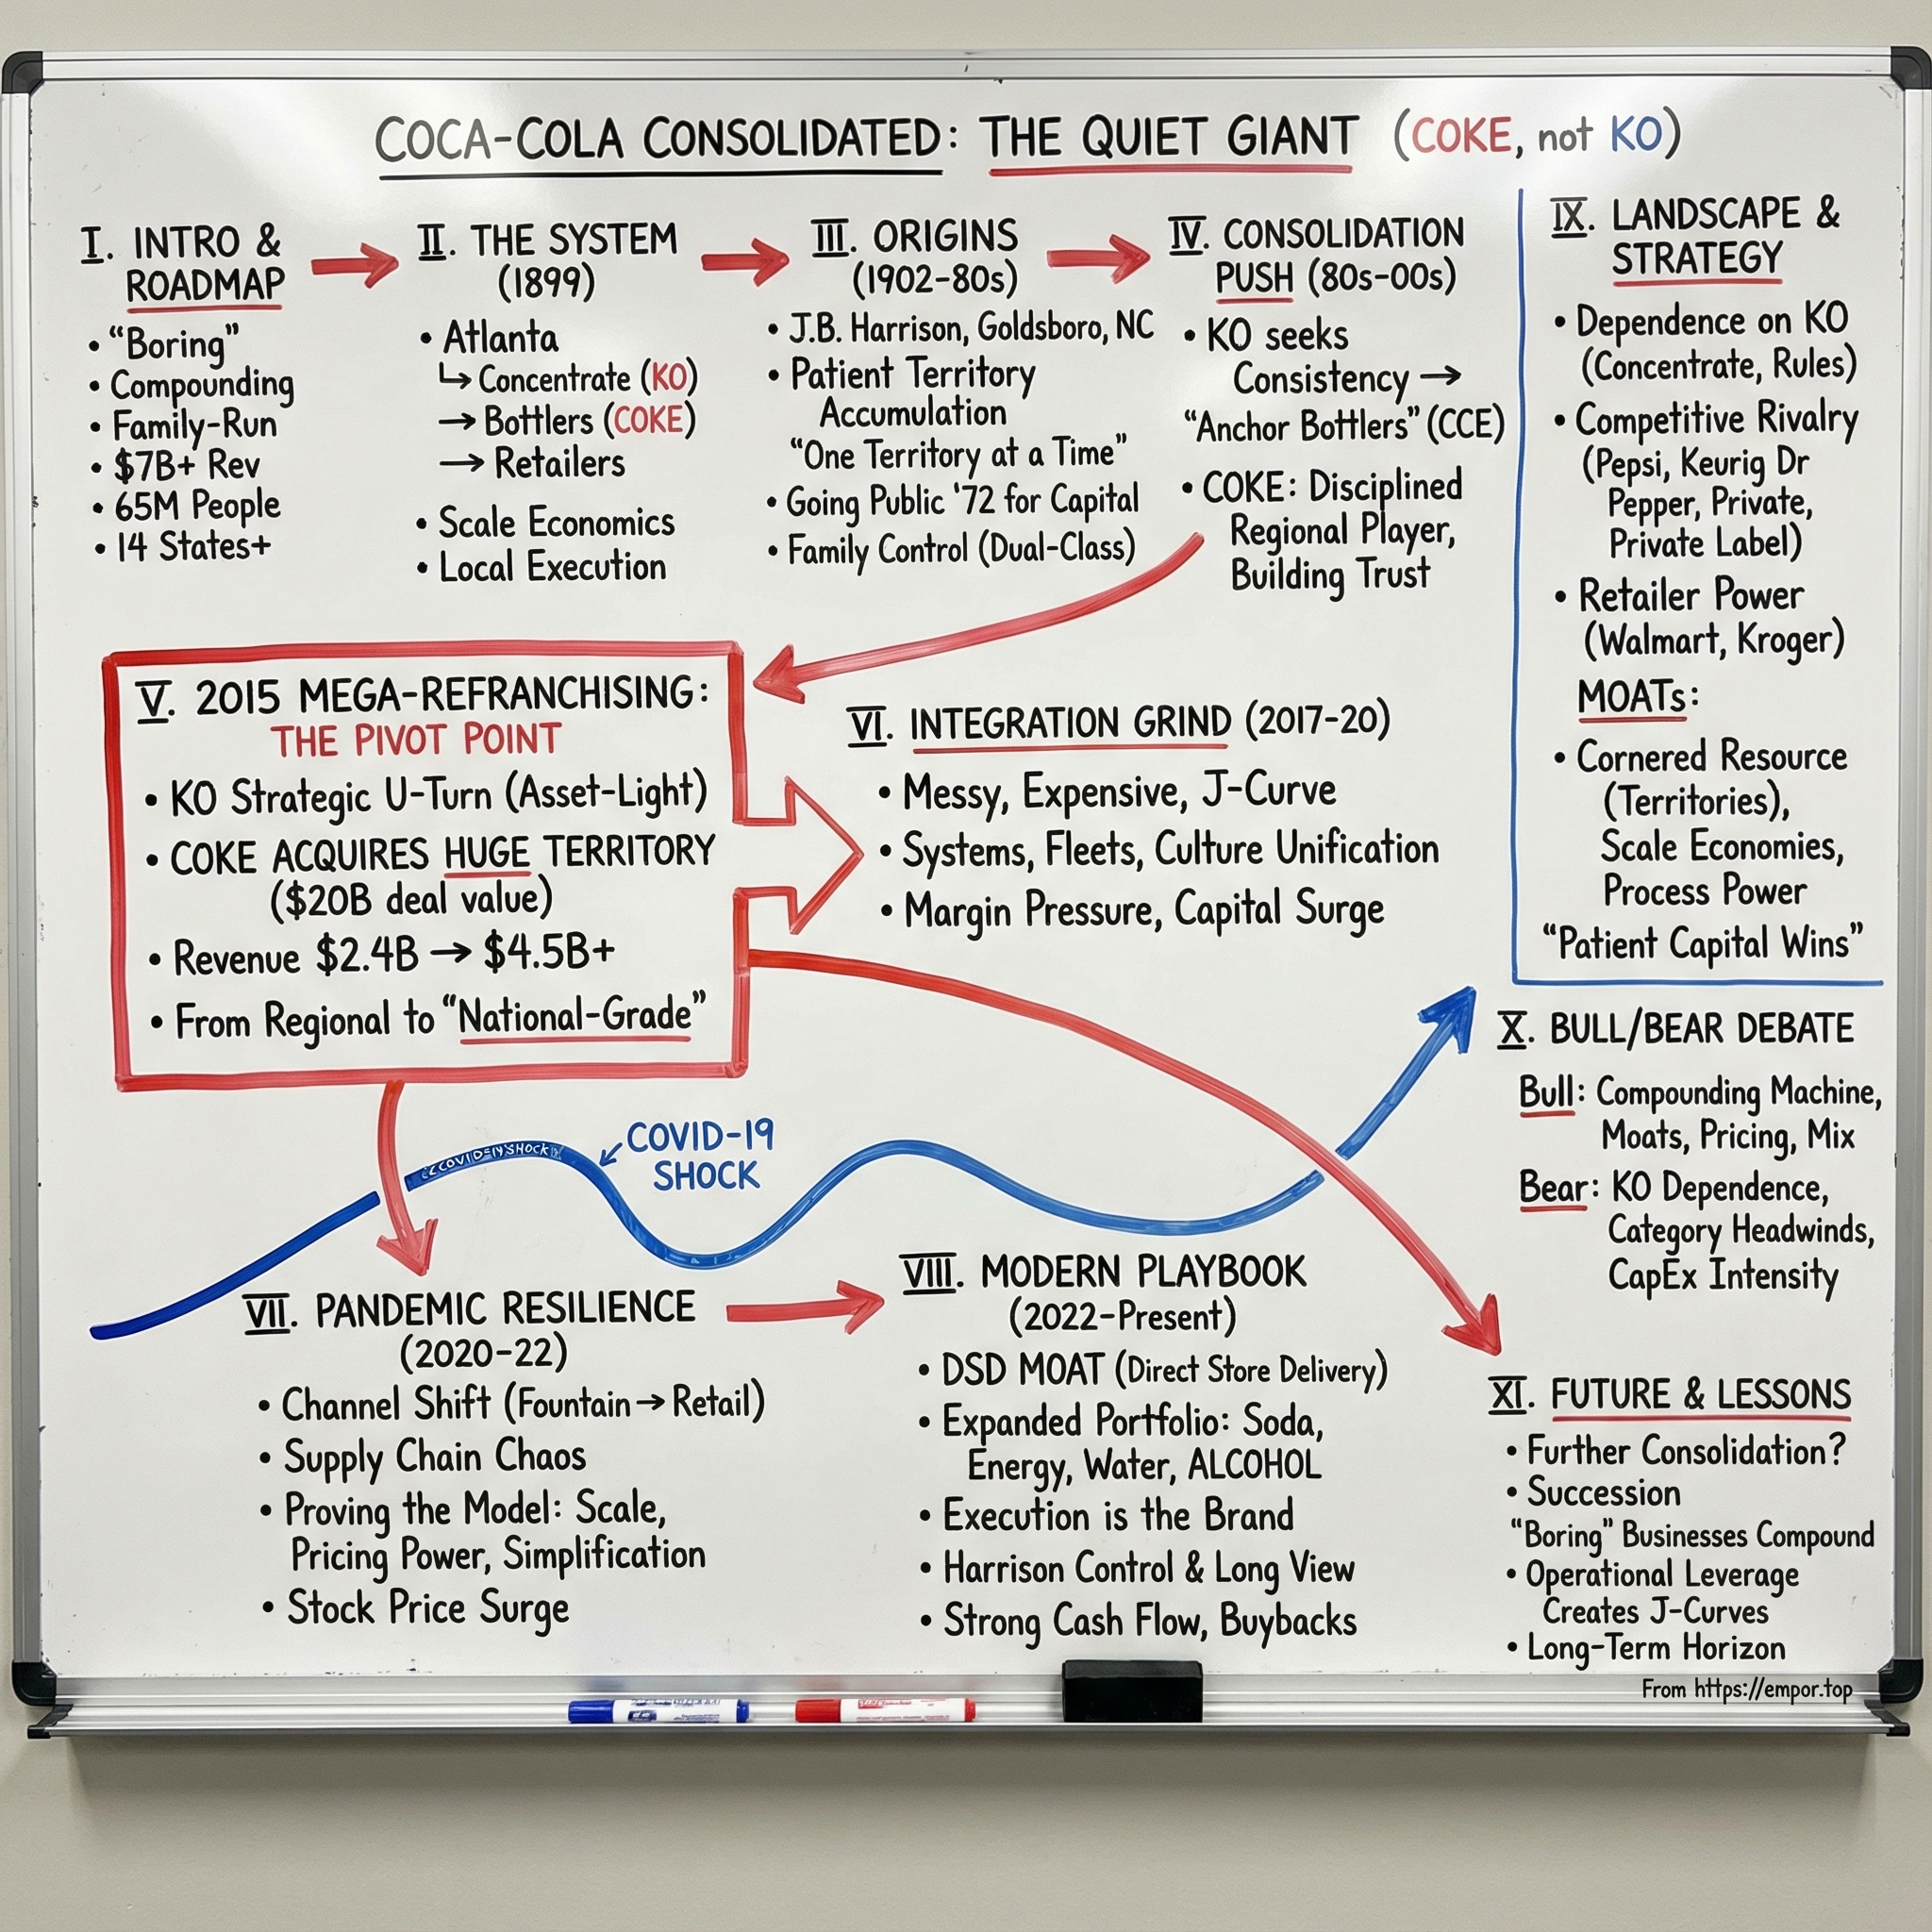 COCA-COLA CONSOLIDATED: THE QUIET GIANT (COKE, not KO)
I. INTRO &
ROADMAP
• "Boring"
• Compounding
• Family-Run
• $7B+ Rev
• 65M People
• 14 States+
II. THE SYSTEM
(1899)
• Atlanta
↳ Concentrate (KO)
→ Bottlers (COKE)
→ Retailers
• Scale Economics
• Local Execution
III. ORIGINS
(1902-80s)
• J.B. Harrison, Goldsboro, NC
• Patient Territory
Accumulation
"One Territory at a Time"
• Going Public '72 for Capital
• Family Control (Dual-Class)
IV. CONSOLIDATION
PUSH (80s-00s)
• KO seeks
Consistency →
"Anchor Bottlers" (CCE)
• COKE: Disciplined
Regional Player,
Building Trust
V. 2015 MEGA-REFRANCHISING:
THE PIVOT POINT
• KO Strategic U-Turn (Asset-Light)
• COKE ACQUIRES HUGE TERRITORY
($20B deal value)
• Revenue $2.4B → $4.5B+
• From Regional to "National-Grade"
VI. INTEGRATION GRIND (2017-20)
• Messy, Expensive, J-Curve
• Systems, Fleets, Culture Unification
• Margin Pressure, Capital Surge
COVID-19 SHOCK
COVID-19
SHOCK
VII. PANDEMIC RESILIENCE
(2020-22)
• Channel Shift (Fountain → Retail)
• Supply Chain Chaos
• Proving the Model: Scale,
Pricing Power, Simplification
• Stock Price Surge
VIII. MODERN PLAYBOOK
(2022-Present)
• DSD MOAT (Direct Store Delivery)
• Expanded Portfolio: Soda,
Energy, Water, ALCOHOL
• Execution is the Brand
• Harrison Control & Long View
• Strong Cash Flow, Buybacks
IX. LANDSCAPE &
STRATEGY
• Dependence on KO
(Concentrate, Rules)
• Competitive Rivalry
(Pepsi, Keurig Dr
Pepper, Private,
Private Label)
• Retailer Power
(Walmart, Kroger)
MOATs:
• Cornered Resource
(Territories),
Scale Economies,
Process Power
"Patient Capital Wins"
X. BULL/BEAR DEBATE
Bull: Compounding Machine,
Moats, Pricing, Mix
Bear: KO Dependence,
Category Headwinds,
CapEx Intensity
XI. FUTURE & LESSONS
• Further Consolidation?
• Succession
"Boring" Businesses Compound
• Operational Leverage
Creates J-Curves
• Long-Term Horizon
From https://empor.top